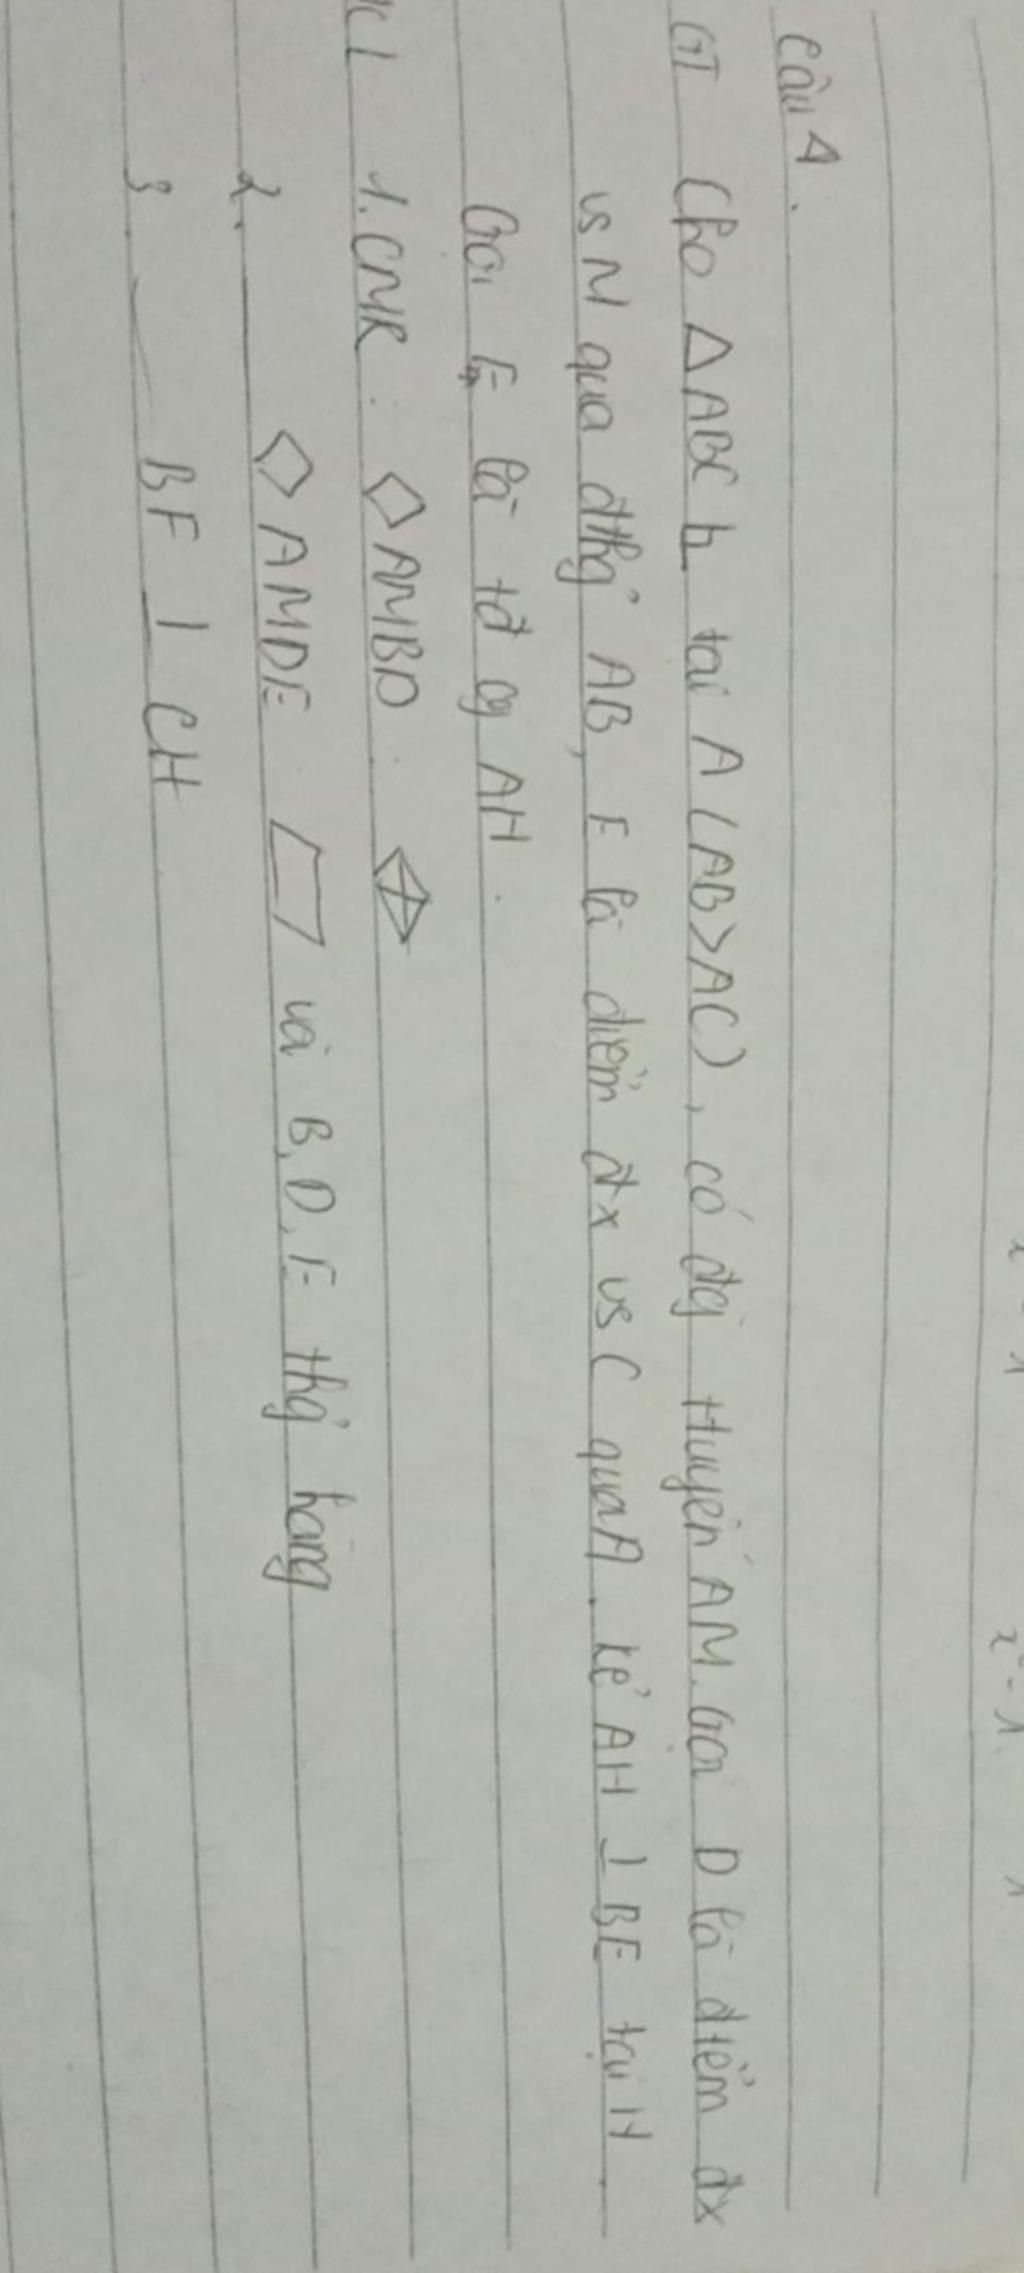 Câu 4.
GT Cho △ABC ⊥ tại A (AB>AC), có đg Huyến AM. Gọi D là điểm đx
vs M qua đthg̉ AB, E là điểm đx vs C qua A. kẻ AH ⊥ BE tại H.
Gọi F là tđ cg AH.
1. CMR: ◇ AMBD: 
2. ◇ AMDE ▱ và B, D, E thg̉ hàng
3 BF ⊥ CH